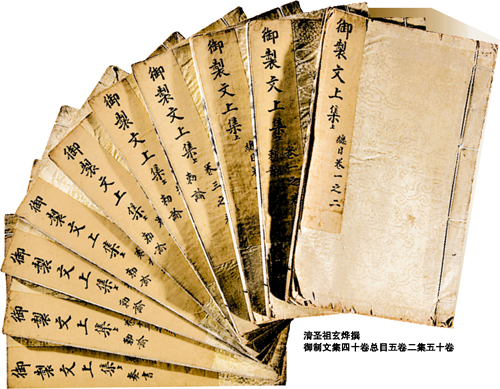 御製文上集 總目卷一之二
御製文上集
御製文上集 總目
御製文上集 卷三之
御製文上集 勅諭
御製文上集 勅諭
御製文上集 勅諭
御製文上集 勅諭
御製文上集 勅諭
御製文上集 奏書
清圣祖玄烨撰
御制文集四十卷总目五卷二集五十卷